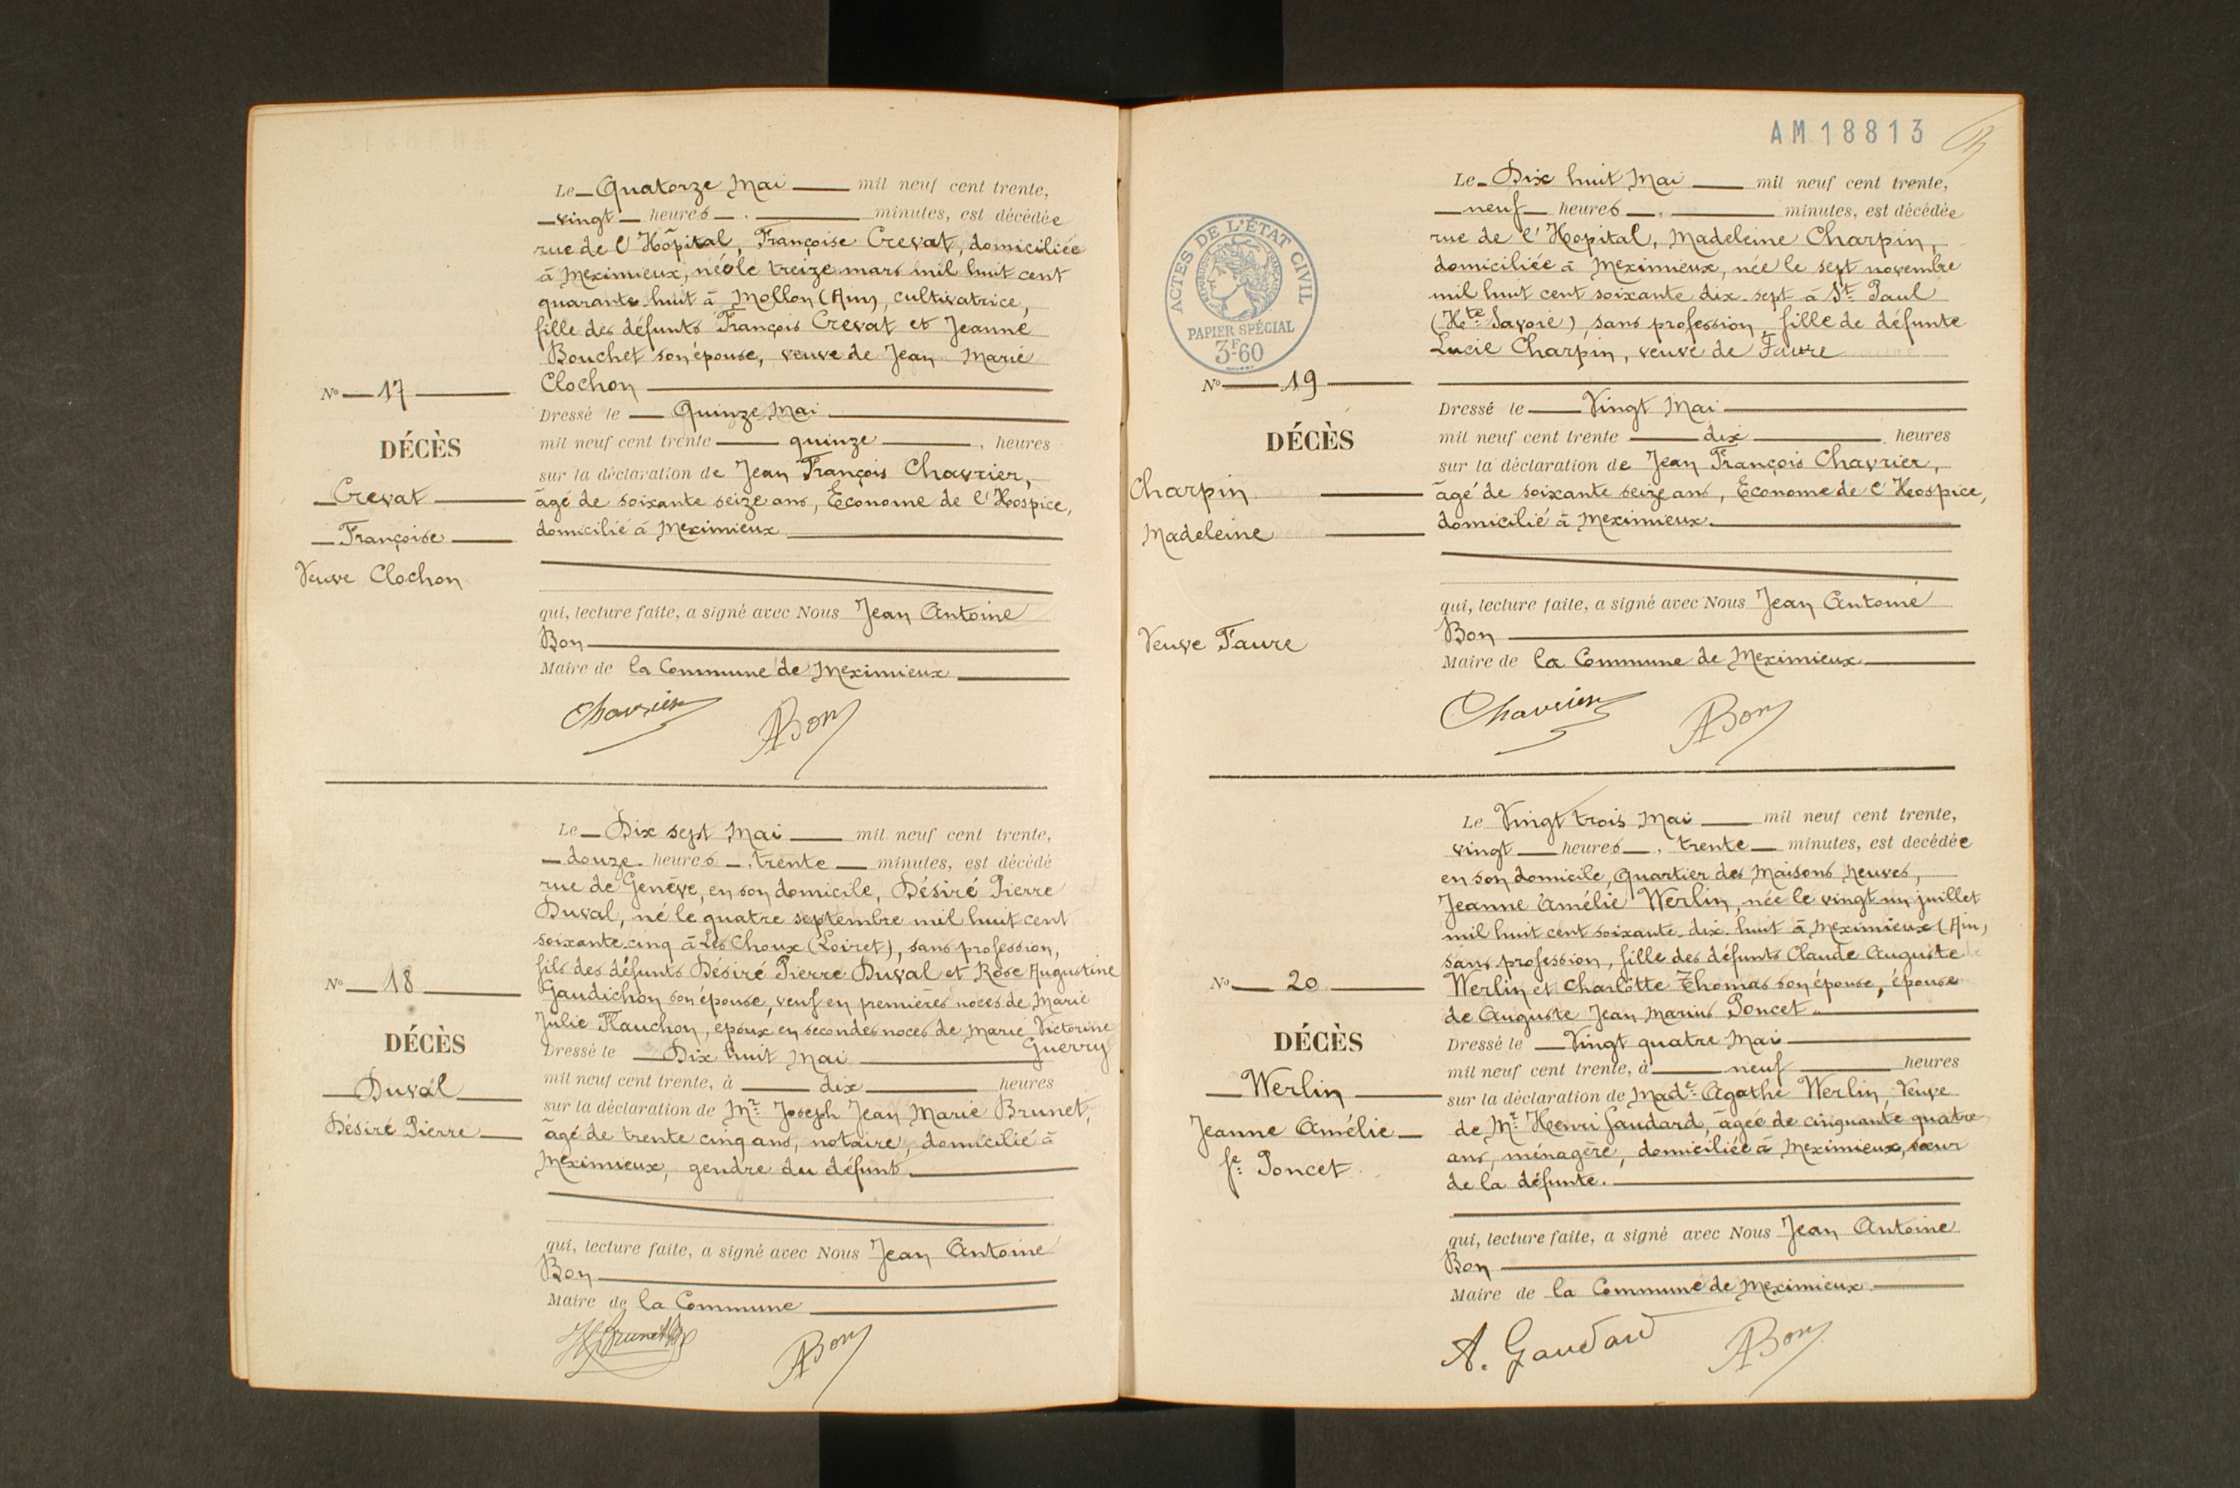 Le Quatorze Mai mil neuf cent trente,
vingt heures minutes, est décédée
rue de l'Hôpital, Françoise Crevat, domiciliée
à Meximieux, née le treize mars mil huit cent
quarante-huit à Mollon (Ain), cultivatrice,
fille des défunts François Crevat et Jeanne
Bouchet son épouse, veuve de Jean Marie
Clochon
Nº 17
DÉCÈS
Crevat
Françoise
Veuve Clochon
Dressé le Quinze Mai
mil neuf cent trente quinze, heures
sur la déclaration de Jean François Chavrier,
âgé de soixante seize ans, Econome de l'Hospice,
domicilié à Meximieux
qui, lecture faite, a signé avec Nous Jean Antoine
Bon
Maire de la Commune de Meximieux
Chavrier ABon
Le Dix sept Mai mil neuf cent trente,
douze heures, trente minutes, est décédé
rue de Genève, en son domicile, Désiré Pierre
Duval, né le quatre septembre mil huit cent
soixante-cinq à Les Choux (Loiret), sans profession,
fils des défunts Désiré Pierre Duval et Rose Augustine
Gaudichon son épouse, veuf en premières noces de Marie
Julie Flauchon, époux en secondes noces de Marie Victorine
Guerry
Nº 18
DÉCÈS
Duval
Désiré Pierre
Dressé le Dix huit Mai
mil neuf cent trente, à dix heures
sur la déclaration de Mr Joseph Jean Marie Brunet,
âgé de trente cinq ans, notaire, domicilié à
Meximieux, gendre du défunt
qui, lecture faite, a signé avec Nous Jean Antoine
Bon
Maire de la Commune
Brunet ABon
AM 18813
Le Dix huit Mai mil neuf cent trente,
neuf heures, minutes, est décédée
rue de l'Hopital, Madeleine Charpin,
domiciliée à Meximieux, née le sept novembre
mil huit cent soixante dix-sept à St Paul
(Hte Savoie) sans profession, fille de défunte
Lucie Charpin, veuve de Faure
ACTES DE L'ÉTAT CIVIL
PAPIER SPÉCIAL
3F60
Nº 19
DÉCÈS
Charpin
Madeleine
Veuve Faure
Dressé le Vingt Mai
mil neuf cent trente dix heures
sur la déclaration de Jean François Chavrier,
âgé de soixante seize ans, Econome de l'Hospice,
domicilié à Meximieux.
qui, lecture faite, a signé avec Nous Jean Antoine
Bon
Maire de la Commune de Meximieux
Chavrier ABon
Le Vingt trois Mai mil neuf cent trente,
vingt heures, trente minutes, est decédée
en son domicile, Quartier des Maisons neuves,
Jeanne Amélie Werlin, née le vingt un juillet
mil huit cent soixante-dix-huit à Meximieux (Ain,
sans profession, fille des défunts Claude Auguste
Werlin et Charlotte Thomas son épouse, épouse
de Auguste Jean Marius Poncet.
Nº 20
DÉCÈS
Werlin
Jeanne Amélie
fe Poncet
Dressé le Vingt quatre Mai
mil neuf cent trente, à neuf heures
sur la déclaration de Made Agathe Werlin, Veuve
de Mr Henri Gaudard, âgée de cinquante quatre
ans, ménagère, domiciliée à Meximieux, sœur
de la défunte.
qui, lecture faite, a signé avec Nous Jean Antoine
Bon
Maire de la Commune de Meximieux
A. Gaudard ABon